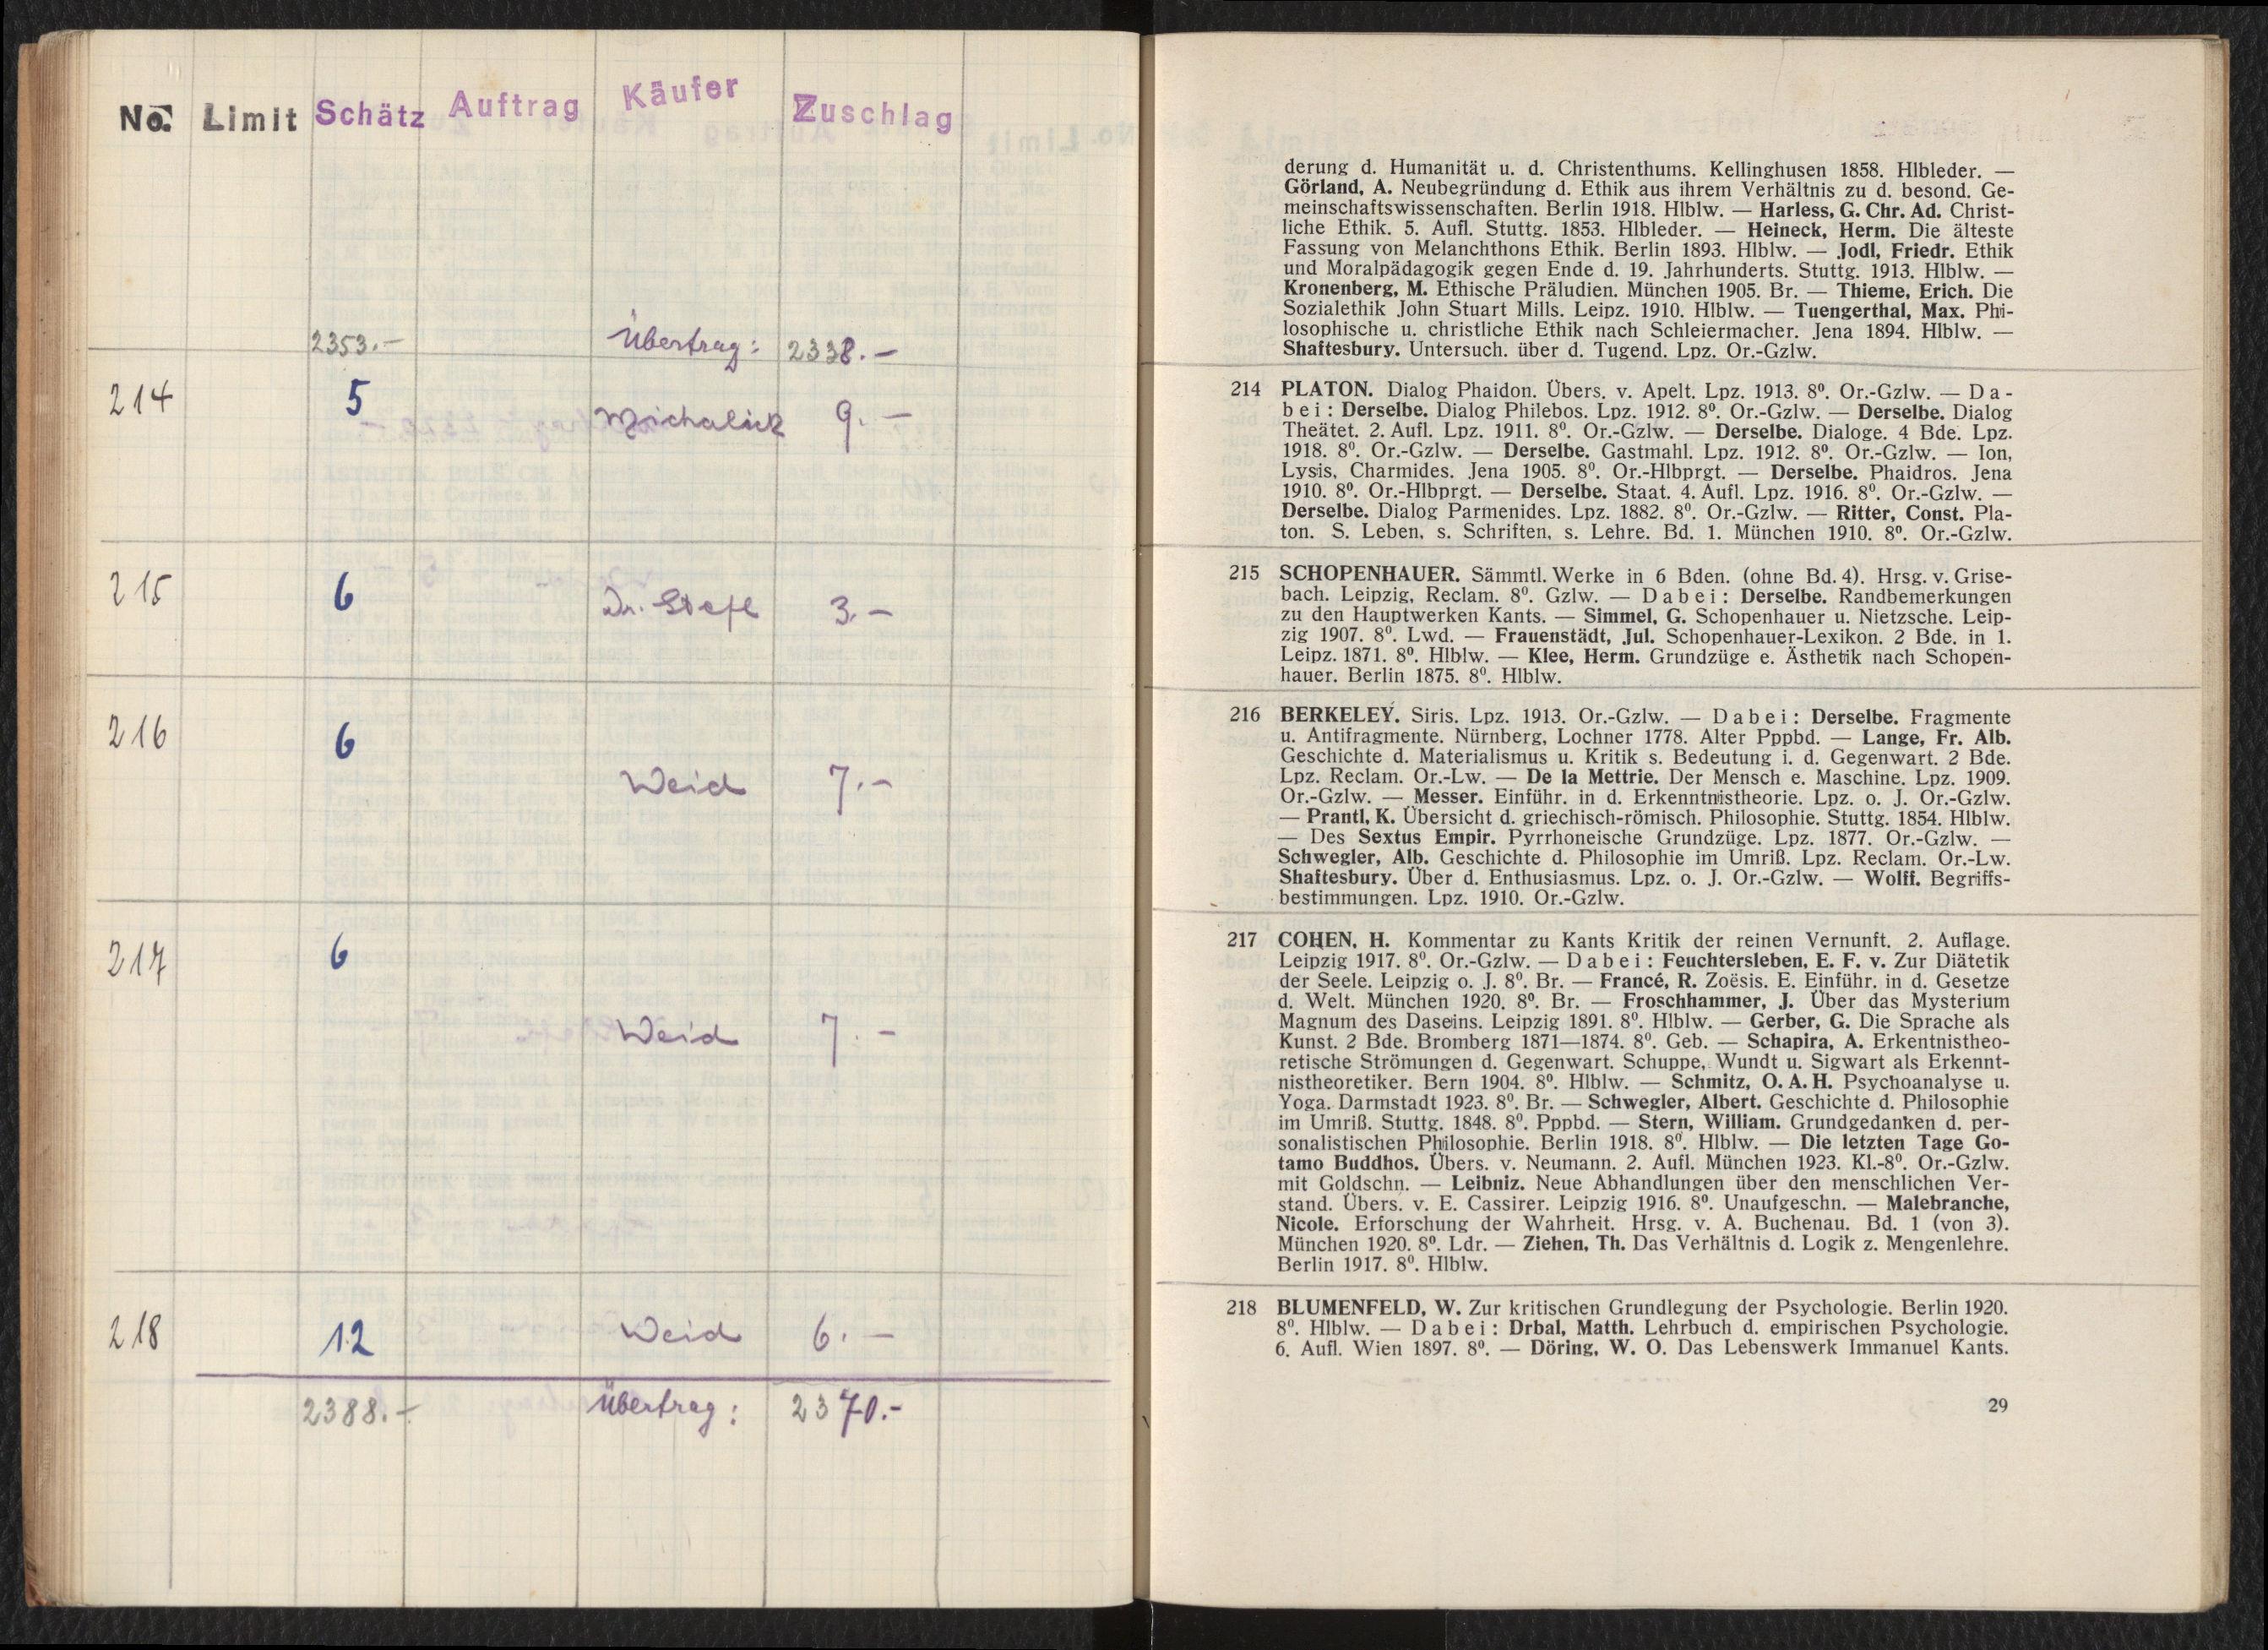 No. Limit Schätz Auftrag Käufer Zuschlag
2353.- Übertrag: 2338.-
214 5 Michalick 9.-
215 6 Dr. Stefl 3.-
216 6 Weid 7.-
217 6 Weid 7.-
218 12 Weid 6.-
2388.- Übertrag: 2370.-
derung d. Humanität u. d. Christenthums. Kellinghusen 1858. Hlbleder. —
Görland, A. Neubegründung d. Ethik aus ihrem Verhältnis zu d. besond. Ge-
meinschaftswissenschaften. Berlin 1918. Hlblw. — Harless, G. Chr. Ad. Christ-
liche Ethik. 5. Aufl. Stuttg. 1853. Hlbleder. — Heineck, Herm. Die älteste
Fassung von Melanchthons Ethik. Berlin 1893. Hlblw. — Jodl, Friedr. Ethik
und Moralpädagogik gegen Ende d. 19. Jahrhunderts. Stuttg. 1913. Hlblw. —
Kronenberg, M. Ethische Präludien. München 1905. Br. — Thieme, Erich. Die
Sozialethik John Stuart Mills. Leipz. 1910. Hlblw. — Tuengerthal, Max. Phi-
losophische u. christliche Ethik nach Schleiermacher. Jena 1894. Hlblw. —
Shaftesbury. Untersuch. über d. Tugend. Lpz. Or.-Gzlw.
214 PLATON. Dialog Phaidon. Übers. v. Apelt. Lpz. 1913. 8⁰. Or.-Gzlw. — Da-
bei: Derselbe. Dialog Philebos. Lpz. 1912. 8⁰. Or.-Gzlw. — Derselbe. Dialog
Theätet. 2. Aufl. Lpz. 1911. 8⁰. Or.-Gzlw. — Derselbe. Dialoge. 4 Bde. Lpz.
1918. 8⁰. Or.-Gzlw. — Derselbe. Gastmahl. Lpz. 1912. 8⁰. Or.-Gzlw. — Ion,
Lysis, Charmides. Jena 1905. 8⁰. Or.-Hlbprgt. — Derselbe. Phaidros. Jena
1910. 8⁰. Or.-Hlbprgt. — Derselbe. Staat. 4. Aufl. Lpz. 1916. 8⁰. Or.-Gzlw. —
Derselbe. Dialog Parmenides. Lpz. 1882. 8⁰. Or.-Gzlw. — Ritter, Const. Pla-
ton. S. Leben, s. Schriften, s. Lehre. Bd. 1. München 1910. 8⁰. Or.-Gzlw.
215 SCHOPENHAUER. Sämmtl. Werke in 6 Bden. (ohne Bd. 4). Hrsg. v. Grise-
bach. Leipzig, Reclam. 8⁰. Gzlw. — Dabei: Derselbe. Randbemerkungen
zu den Hauptwerken Kants. — Simmel, G. Schopenhauer u. Nietzsche. Leip-
zig 1907. 8⁰. Lwd. — Frauenstädt, Jul. Schopenhauer-Lexikon. 2 Bde. in 1.
Leipz. 1871. 8⁰. Hlblw. — Klee, Herm. Grundzüge e. Ästhetik nach Schopen-
hauer. Berlin 1875. 8⁰. Hlblw.
216 BERKELEY. Siris. Lpz. 1913. Or.-Gzlw. — Dabei: Derselbe. Fragmente
u. Antifragmente. Nürnberg, Lochner 1778. Alter Pppbd. — Lange, Fr. Alb.
Geschichte d. Materialismus u. Kritik s. Bedeutung i. d. Gegenwart. 2 Bde.
Lpz. Reclam. Or.-Lw. — De la Mettrie. Der Mensch e. Maschine. Lpz. 1909.
Or.-Gzlw. — Messer. Einführ. in d. Erkenntnistheorie. Lpz. o. J. Or.-Gzlw.
— Prantl, K. Übersicht d. griechisch-römisch. Philosophie. Stuttg. 1854. Hlblw.
— Des Sextus Empir. Pyrrhoneische Grundzüge. Lpz. 1877. Or.-Gzlw. —
Schwegler, Alb. Geschichte d. Philosophie im Umriß. Lpz. Reclam. Or.-Lw.
Shaftesbury. Über d. Enthusiasmus. Lpz. o. J. Or.-Gzlw. — Wolff. Begriffs-
bestimmungen. Lpz. 1910. Or.-Gzlw.
217 COHEN, H. Kommentar zu Kants Kritik der reinen Vernunft. 2. Auflage.
Leipzig 1917. 8⁰. Or.-Gzlw. — Dabei: Feuchtersleben, E. F. v. Zur Diätetik
der Seele. Leipzig o. J. 8⁰. Br. — Francé, R. Zoësis. E. Einführ. in d. Gesetze
d. Welt. München 1920. 8⁰. Br. — Froschhammer, J. Über das Mysterium
Magnum des Daseins. Leipzig 1891. 8⁰. Hlblw. — Gerber, G. Die Sprache als
Kunst. 2 Bde. Bromberg 1871—1874. 8⁰. Geb. — Schapira, A. Erkentnistheo-
retische Strömungen d. Gegenwart. Schuppe, Wundt u. Sigwart als Erkennt-
nistheoretiker. Bern 1904. 8⁰. Hlblw. — Schmitz, O. A. H. Psychoanalyse u.
Yoga. Darmstadt 1923. 8⁰. Br. — Schwegler, Albert. Geschichte d. Philosophie
im Umriß. Stuttg. 1848. 8⁰. Pppbd. — Stern, William. Grundgedanken d. per-
sonalistischen Philosophie. Berlin 1918. 8⁰. Hlblw. — Die letzten Tage Go-
tamo Buddhos. Übers. v. Neumann. 2. Aufl. München 1923. Kl.-8⁰. Or.-Gzlw.
mit Goldschn. — Leibniz. Neue Abhandlungen über den menschlichen Ver-
stand. Übers. v. E. Cassirer. Leipzig 1916. 8⁰. Unaufgeschn. — Malebranche,
Nicole. Erforschung der Wahrheit. Hrsg. v. A. Buchenau. Bd. 1 (von 3).
München 1920. 8⁰. Ldr. — Ziehen, Th. Das Verhältnis d. Logik z. Mengenlehre.
Berlin 1917. 8⁰. Hlblw.
218 BLUMENFELD, W. Zur kritischen Grundlegung der Psychologie. Berlin 1920.
8⁰. Hlblw. — Dabei: Drbal, Matth. Lehrbuch d. empirischen Psychologie.
6. Aufl. Wien 1897. 8⁰. — Döring, W. O. Das Lebenswerk Immanuel Kants.
29